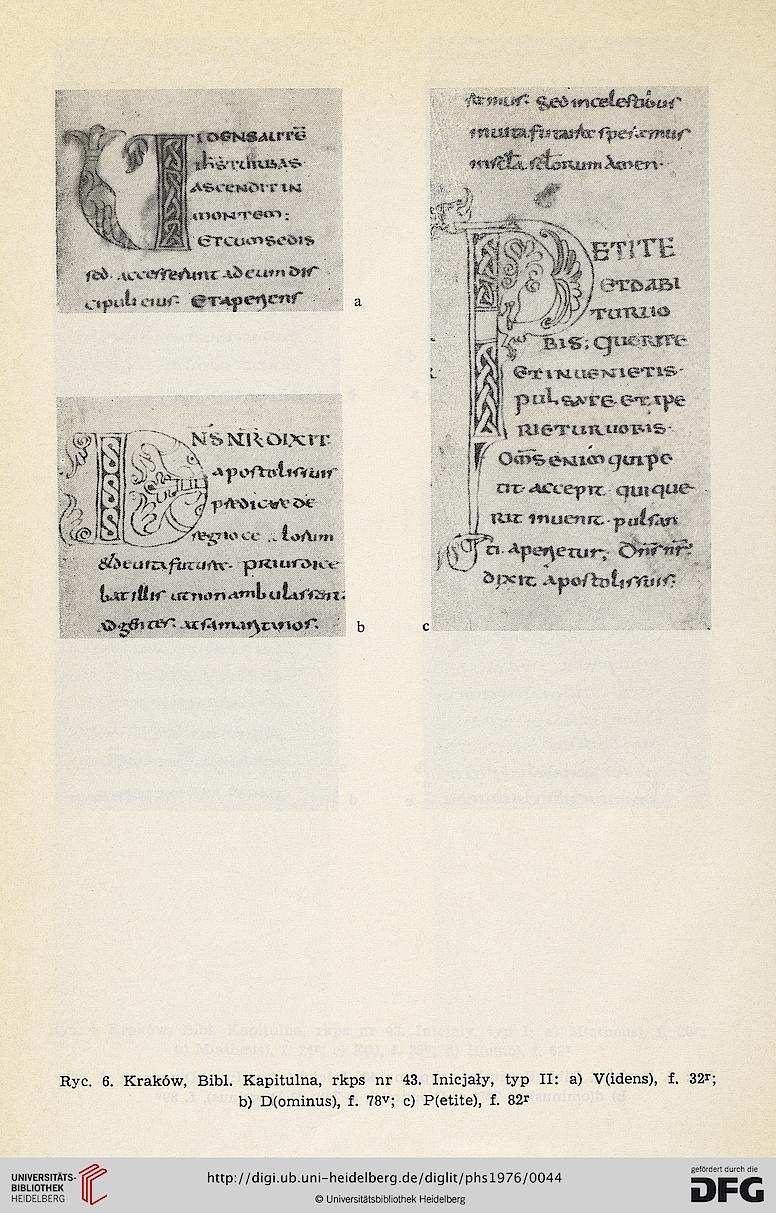 VIDENS AUTE͞
ih͞s TURBAS
ASCENDIT IN
MONTEM:
ET CUM SEDIS
sed. accesserunt ad eum dis
cipuli eius. Et aperiens
a
DN͞S N͞R DIXIT
apostolis suis
predicate de
regno ce lorum
& de uita futura. prius dice
bat illis ut non ambulassent
b
in uita futura speramus
Amen.
PETITE
ET DABI
TUR UO
BIS; QUERITE
ET INUENIETIS.
PULSATE. ET APE
RIETUR UOBIS.
Om͞s enim qui pe
tit. accepit. qui que
rit inuenit. pulsan
ti. aperietur; Dn͞s n͞r
dixit apostolis suis:
c
Ryc. 6. Kraków, Bibl. Kapitulna, rkps nr 43. Inicjały, typ II: a) V(idens), f. 32r;
b) D(ominus), f. 78v; c) P(etite), f. 82r
UNIVERSITÄTS-
BIBLIOTHEK
HEIDELBERG
http://digi.ub.uni-heidelberg.de/diglit/phs1976/0044
© Universitätsbibliothek Heidelberg
gefördert durch die
DFG